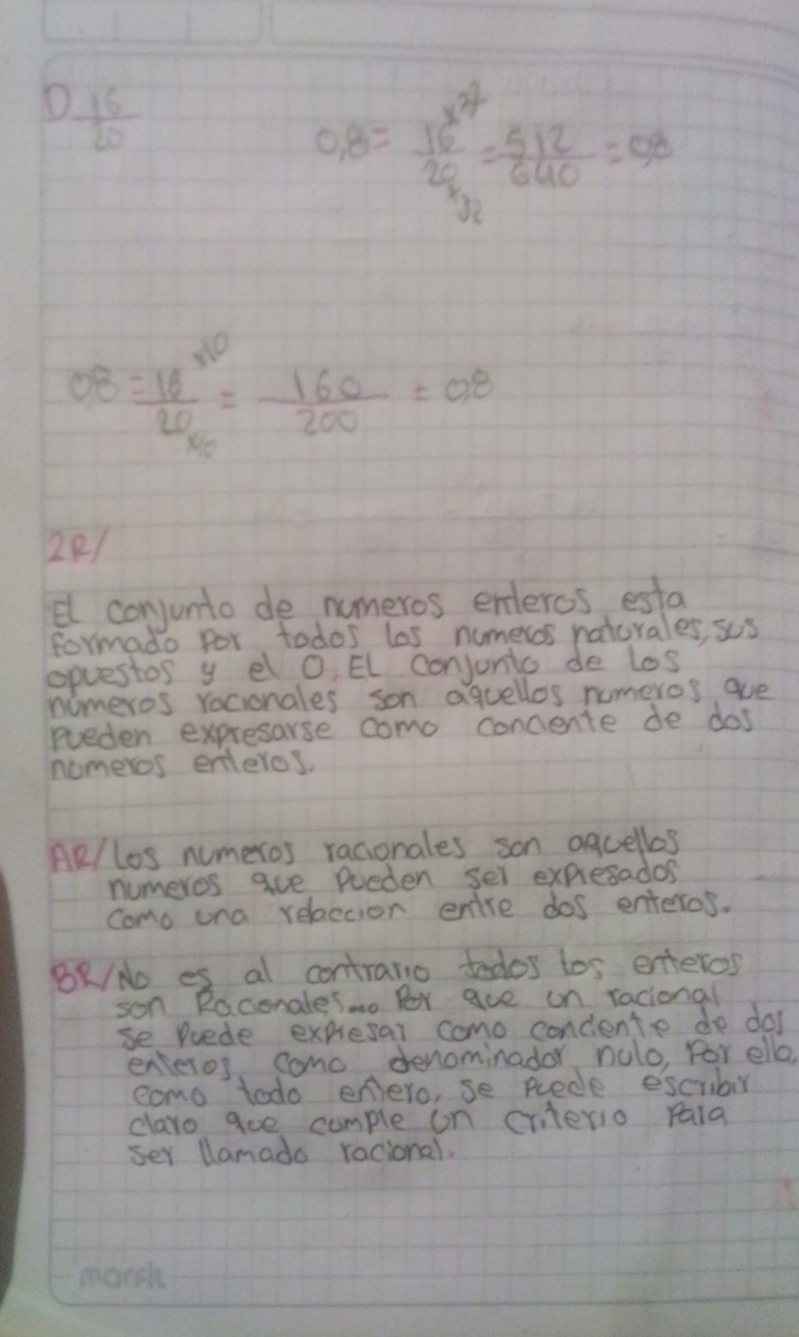 D 16/20
0,8 = 16 x32 / 20 x32 = 512/640 = 0,8
0,8 = 16 x10 / 20 x10 = 160/200 = 0,8
2R/
El conjunto de numeros enteros esta
formado por todos los numeros naturales, sus
opuestos y el 0. El conjunto de los
números racionales son aquellos numeros que
pueden expresarse como conciente de dos
numeros enteros.
AR/ Los numeros racionales son aquellos
numeros que pueden ser expresados
como una relaccion entre dos enteros.
BR/ No es al contrario todos los enteros
son Racionales... Por que un racional
se puede expresar como conciente de dos
enteros, como denominador nulo, Por ello,
como todo entero, se puede escribir
claro que cumple un criterio para
ser llamado racional.